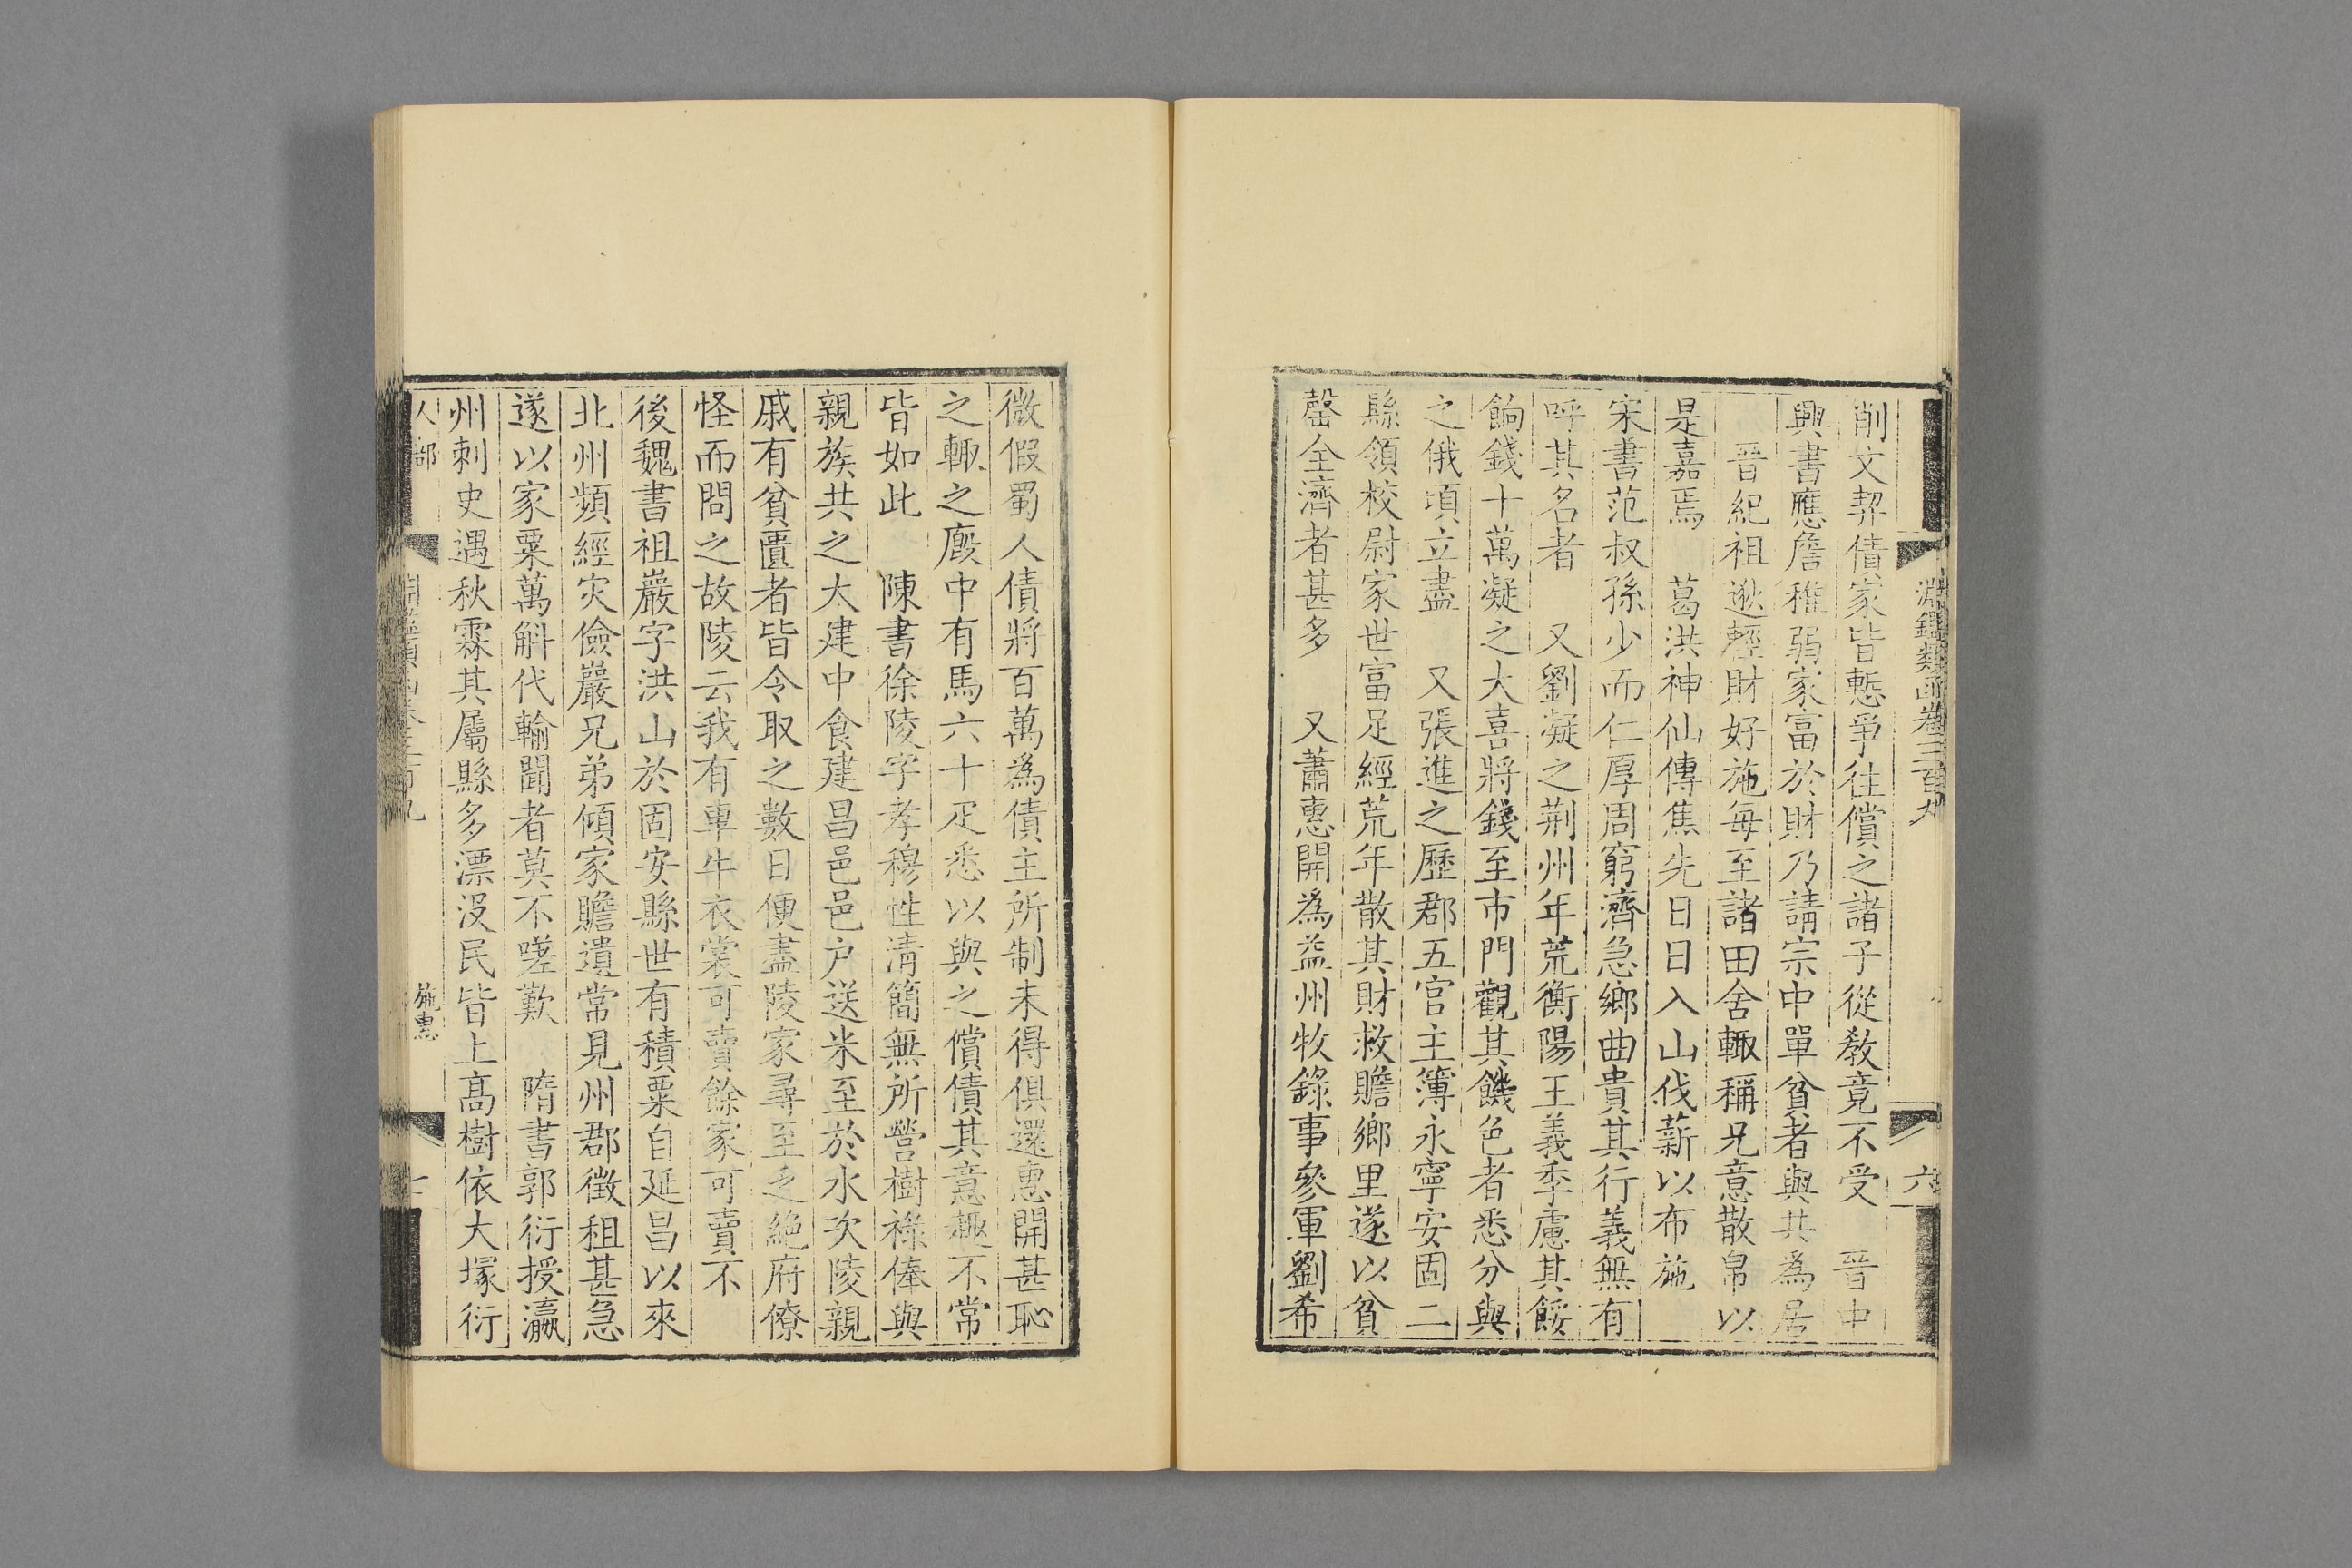 淵鑑類函卷三百九
六
削文契債家皆慙爭往償之諸子從教竟不受　晉中
興書應詹稚弱家富於財乃請宗中單貧者與共爲居
晉紀祖逖輕財好施每至諸田舍輙稱兄意散帛以
是嘉焉　葛洪神仙傳焦先日日入山伐薪以布施
宋書范叔孫少而仁厚周窮濟急鄉曲貴其行義無有
呼其名者　又劉凝之荆州年荒衡陽王義季慮其餒
餉錢十萬凝之大喜將錢至市門觀其饑色者悉分與
之俄頃立盡　又張進之歷郡五官主簿永寧安固二
縣領校尉家世富足經荒年散其財救贍鄉里遂以貧
罄全濟者甚多　又蕭惠開爲益州牧錄事參軍劉希
微假蜀人債將百萬爲債主所制未得俱還惠開甚恥
之輙之廏中有馬六十疋悉以與之償債其意趣不常
皆如此　陳書徐陵字孝穆性淸簡無所營樹祿俸與
親族共之大建中食建昌邑邑戶送米至於水次陵親
戚有貧匱者皆令取之數日便盡陵家尋至乏絕府僚
怪而問之故陵云我有車牛衣裳可賣餘家可賣不
後魏書祖巖字洪山於固安縣世有積粟自延昌以來
北州頻經灾儉巖兄弟傾家贍遺常見州郡徵租甚急
遂以家粟萬斛代輸聞者莫不嗟歎　隋書郭衍授瀛
州刺史遇秋霖其屬縣多漂沒民皆上高樹依大塚衍
人部
施惠